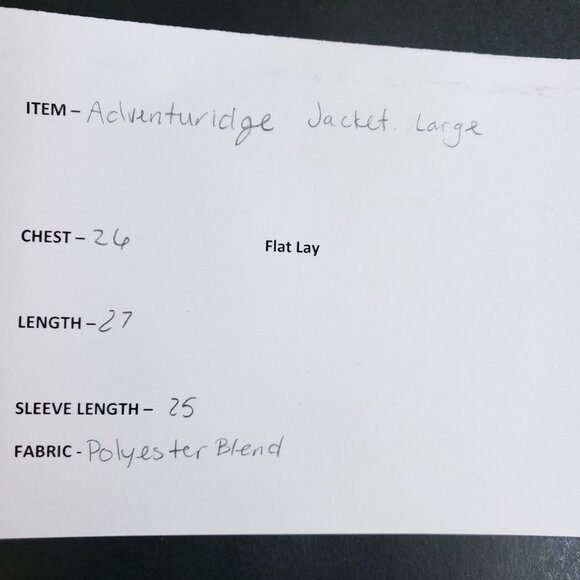 ITEM – Adventuridge Jacket. Large
CHEST – 26 Flat Lay
LENGTH – 27
SLEEVE LENGTH – 25
FABRIC - Polyester Blend